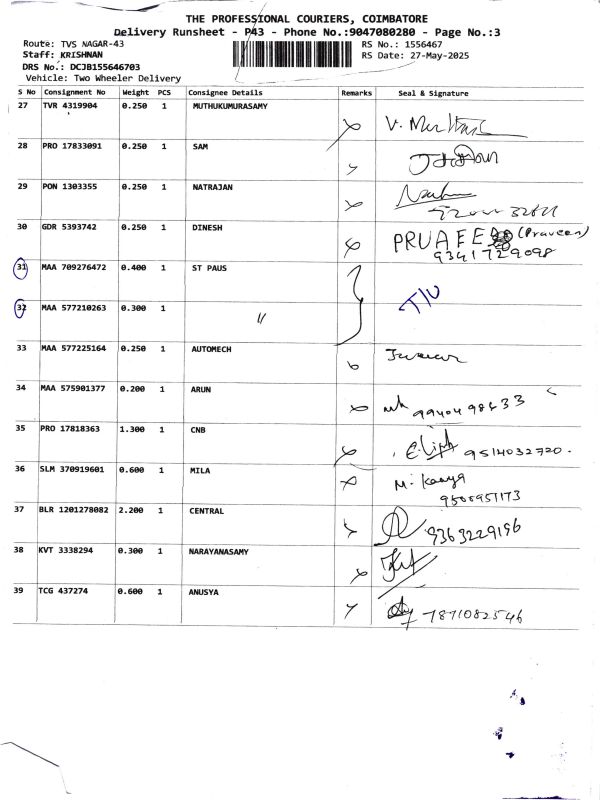 THE PROFESSIONAL COURIERS, COIMBATORE
Delivery Runsheet - P43 - Phone No.:9047080280 - Page No.:3
Route: TVS NAGAR-43 RS No.: 1556467
Staff: KRISHNAN RS Date: 27-May-2025
DRS No.: DCJB155646703
Vehicle: Two Wheeler Delivery
S No Consignment No Weight PCS Consignee Details Remarks Seal & Signature
27 TVR 4319904 0.250 1 MUTHUKUMURASAMY
28 PRO 17833091 0.250 1 SAM
29 PON 1303355 0.250 1 NATRAJAN
30 GDR 5393742 0.250 1 DINESH
PRUAFEE (Praveen)
9341729098
31 MAA 709276472 0.400 1 ST PAUS
T/U
32 MAA 577210263 0.300 1 "
33 MAA 577225164 0.250 1 AUTOMECH
34 MAA 575901377 0.200 1 ARUN
35 PRO 17818363 1.300 1 CNB
9514032720.
36 SLM 370919601 0.600 1 MILA
M. Kaaya
9500951173
37 BLR 1201278082 2.200 1 CENTRAL
9363229196
38 KVT 3338294 0.300 1 NARAYANASAMY
39 TCG 437274 0.600 1 ANUSYA
7871082546